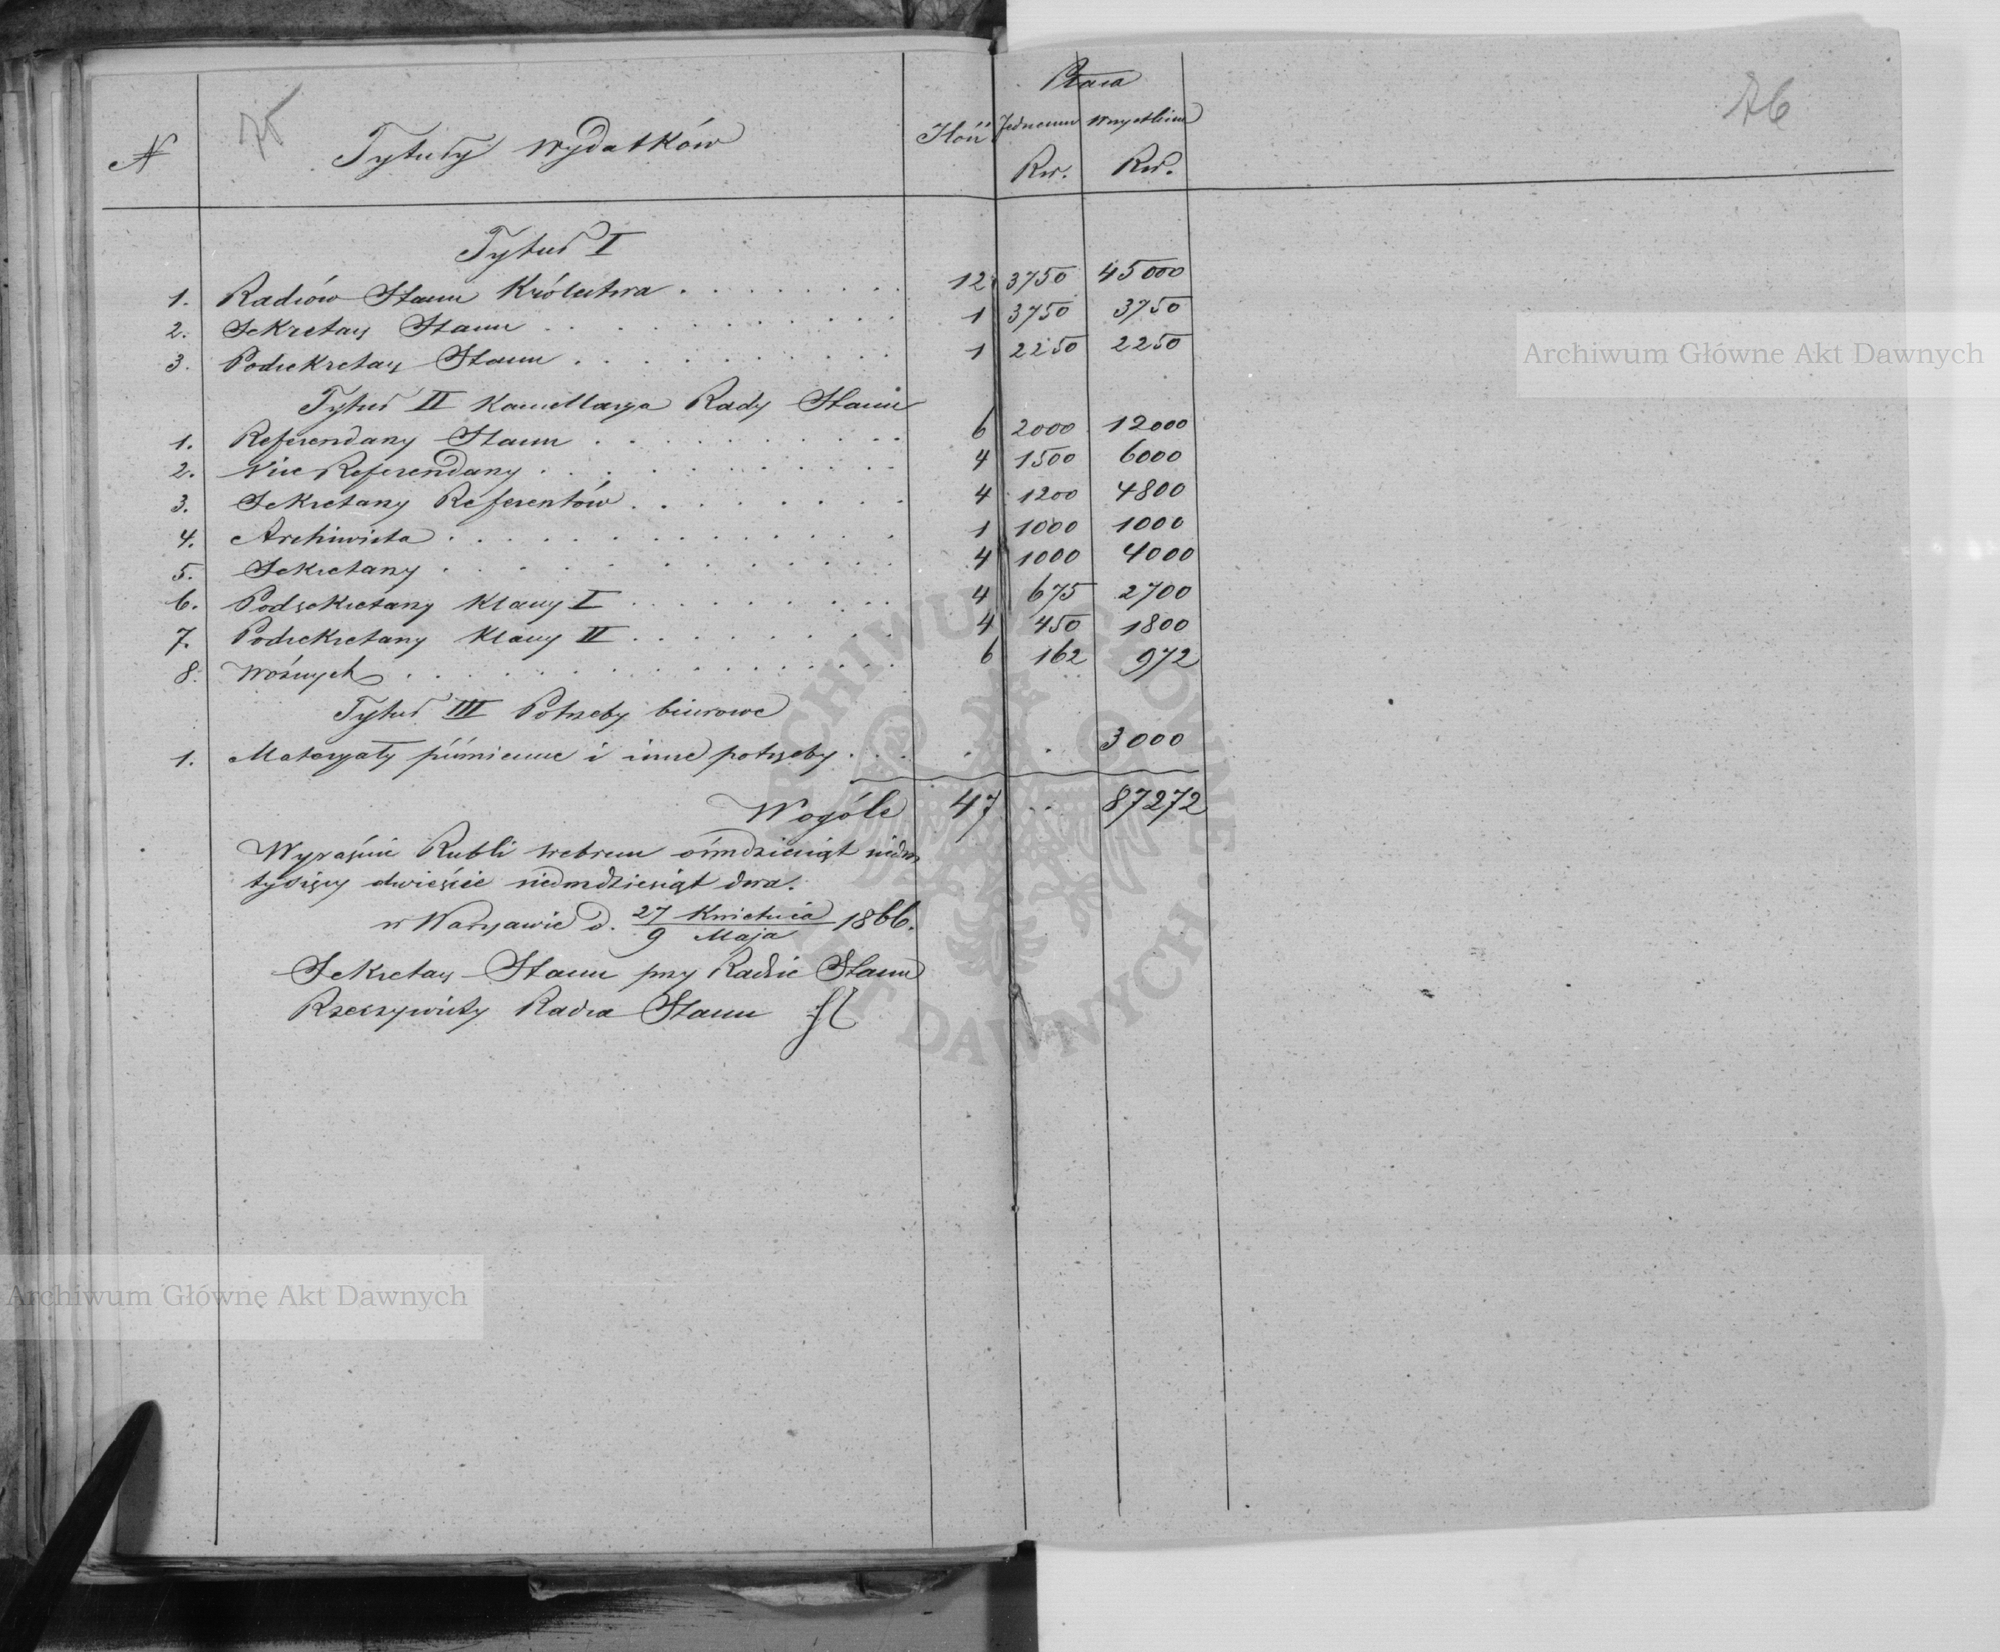 75
76
N Tytuły wydatków Ilość Płaca
Jednemu Wszystkim
Rsr. Rsr.
Tytuł I
1. Radców Stanu Królestwa . . . . . . . . 12 3750 45000
2. Sekretarz Stanu . . . . . . . . . . 1 3750 3750
3. Podsekretarz Stanu . . . . . . . . . 1 2250 2250
Tytuł II Kancellarya Rady Stanu
1. Referendarzy Stanu . . . . . . . . . 6 2000 12000
2. Vice Referendarzy . . . . . . . . . . 4 1500 6000
3. Sekretarzy Referentów . . . . . . . . 4 1200 4800
4. Archiwista . . . . . . . . . . . . 1 1000 1000
5. Sekretarzy . . . . . . . . . . . . 4 1000 4000
6. Podsekretarzy Klassy I . . . . . . . . 4 675 2700
7. Podsekretarzy Klassy II . . . . . . . . 4 450 1800
8. Woźnych . . . . . . . . . . . . . 6 162 972
Tytuł III Potrzeby biurowe
1. Materyały piśmienne i inne potrzeby . . . . . 3000
Wogóle 47 . . 87272
Wyraźnie Rubli srebrem ośmdziesiąt siedm
tysięcy dwieście siedmdziesiąt dwa.
w Warszawie d. 27 Kwietnia / 9 Maja 1866.
Sekretarz Stanu przy Radzie Stanu
Rzeczywisty Radca Stanu
Archiwum Główne Akt Dawnych
Archiwum Główne Akt Dawnych
ARCHIWUM GŁÓWNE AKT DAWNYCH